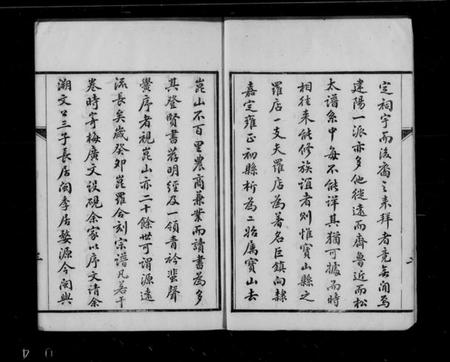 定祠宇而後裔之來拜者竟無聞焉
建陽一派亦多他徙遠而齊魯近而松
太譜系中每不能詳其猶可據而時
相往來能修族誼者則惟寶山縣之
羅店一支夫羅店為著名巨鎮向隸
嘉定雍正初縣析為二始屬寶山去
崑山不百里農商兼業而讀書為多
其登賢書薦明經及一領青衿蜚聲
黌序者視崑山亦二十餘世可謂源遠
流長矣歲癸卯崑羅合刻宗譜凡若干
卷時寄梅廣文設硯余家以序文請余
溯文公三子長居閩季居婺源今閩與